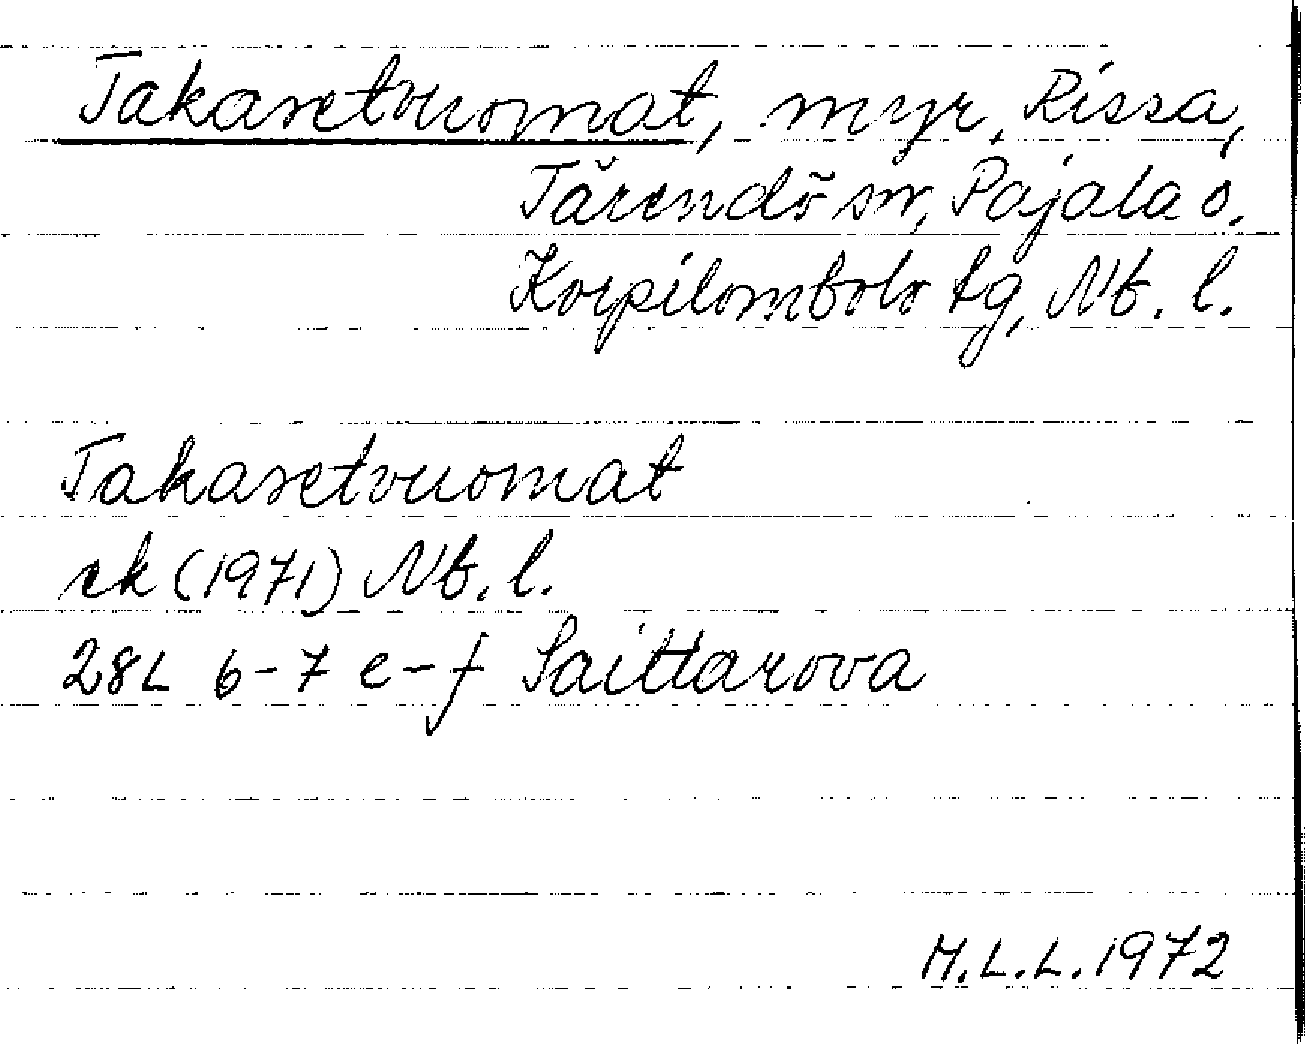 Takasetvuomat, myr, Rissa,
Tärendö sn, Pajala o.
Korpilombolo tg, Nb. l.
Takasetvuomat
ek (1971) Nb. l.
28L 6-7 e-f Saittarova
M.L.L. 1972